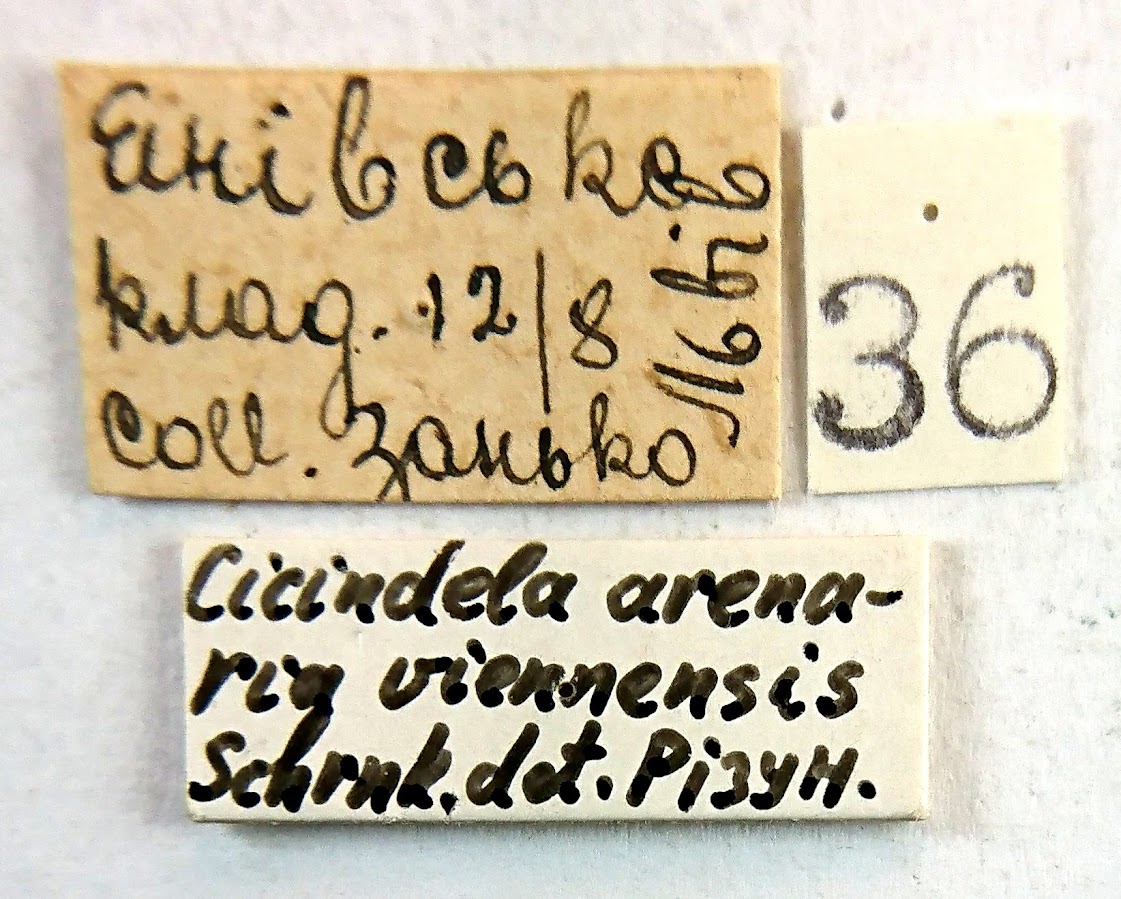 Янівське
клад. 12/8
coll. Занько
Львів
36
Cicindela arena-
ria viennensis
Schrnk. det. Різун.